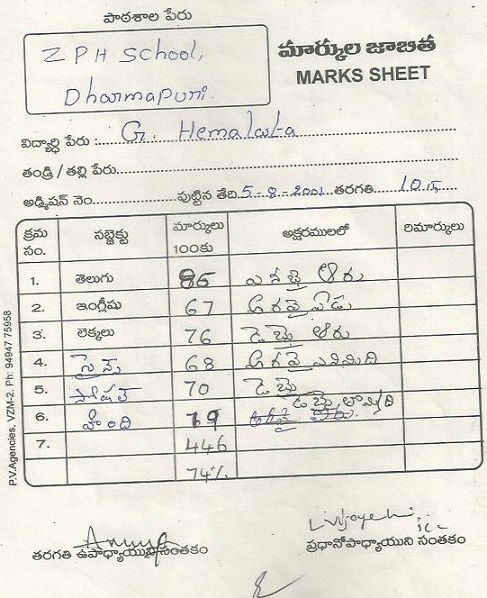 పాఠశాల పేరు
Z P H School,
Dharmapuri.
మార్కుల జాబిత
MARKS SHEET
విద్యార్థి పేరు : G. Hemalata
తండ్రి / తల్లి పేరు
అడ్మిషన్ నెం. పుట్టిన తేది 5-8-2001 తరగతి 10
క్రమ సం. సబ్జెక్టు మార్కులు 100కు అక్షరములలో రిమార్కులు
1. తెలుగు 86 ఎనభై ఆరు
2. ఇంగ్లీషు 67 అరవై ఏడు
3. లెక్కలు 76 డెబ్బై ఆరు
4. సైన్స్ 68 అరవై ఎనిమిది
5. సోషల్ 70 డెబ్బై
6. హింది 79 డెబ్బై తొమ్మిది
7. 446
74%
తరగతి ఉపాధ్యాయుని సంతకం
ప్రధానోపాధ్యాయుని సంతకం
P.V.Agencies, VZM-2. Ph: 94947 75958